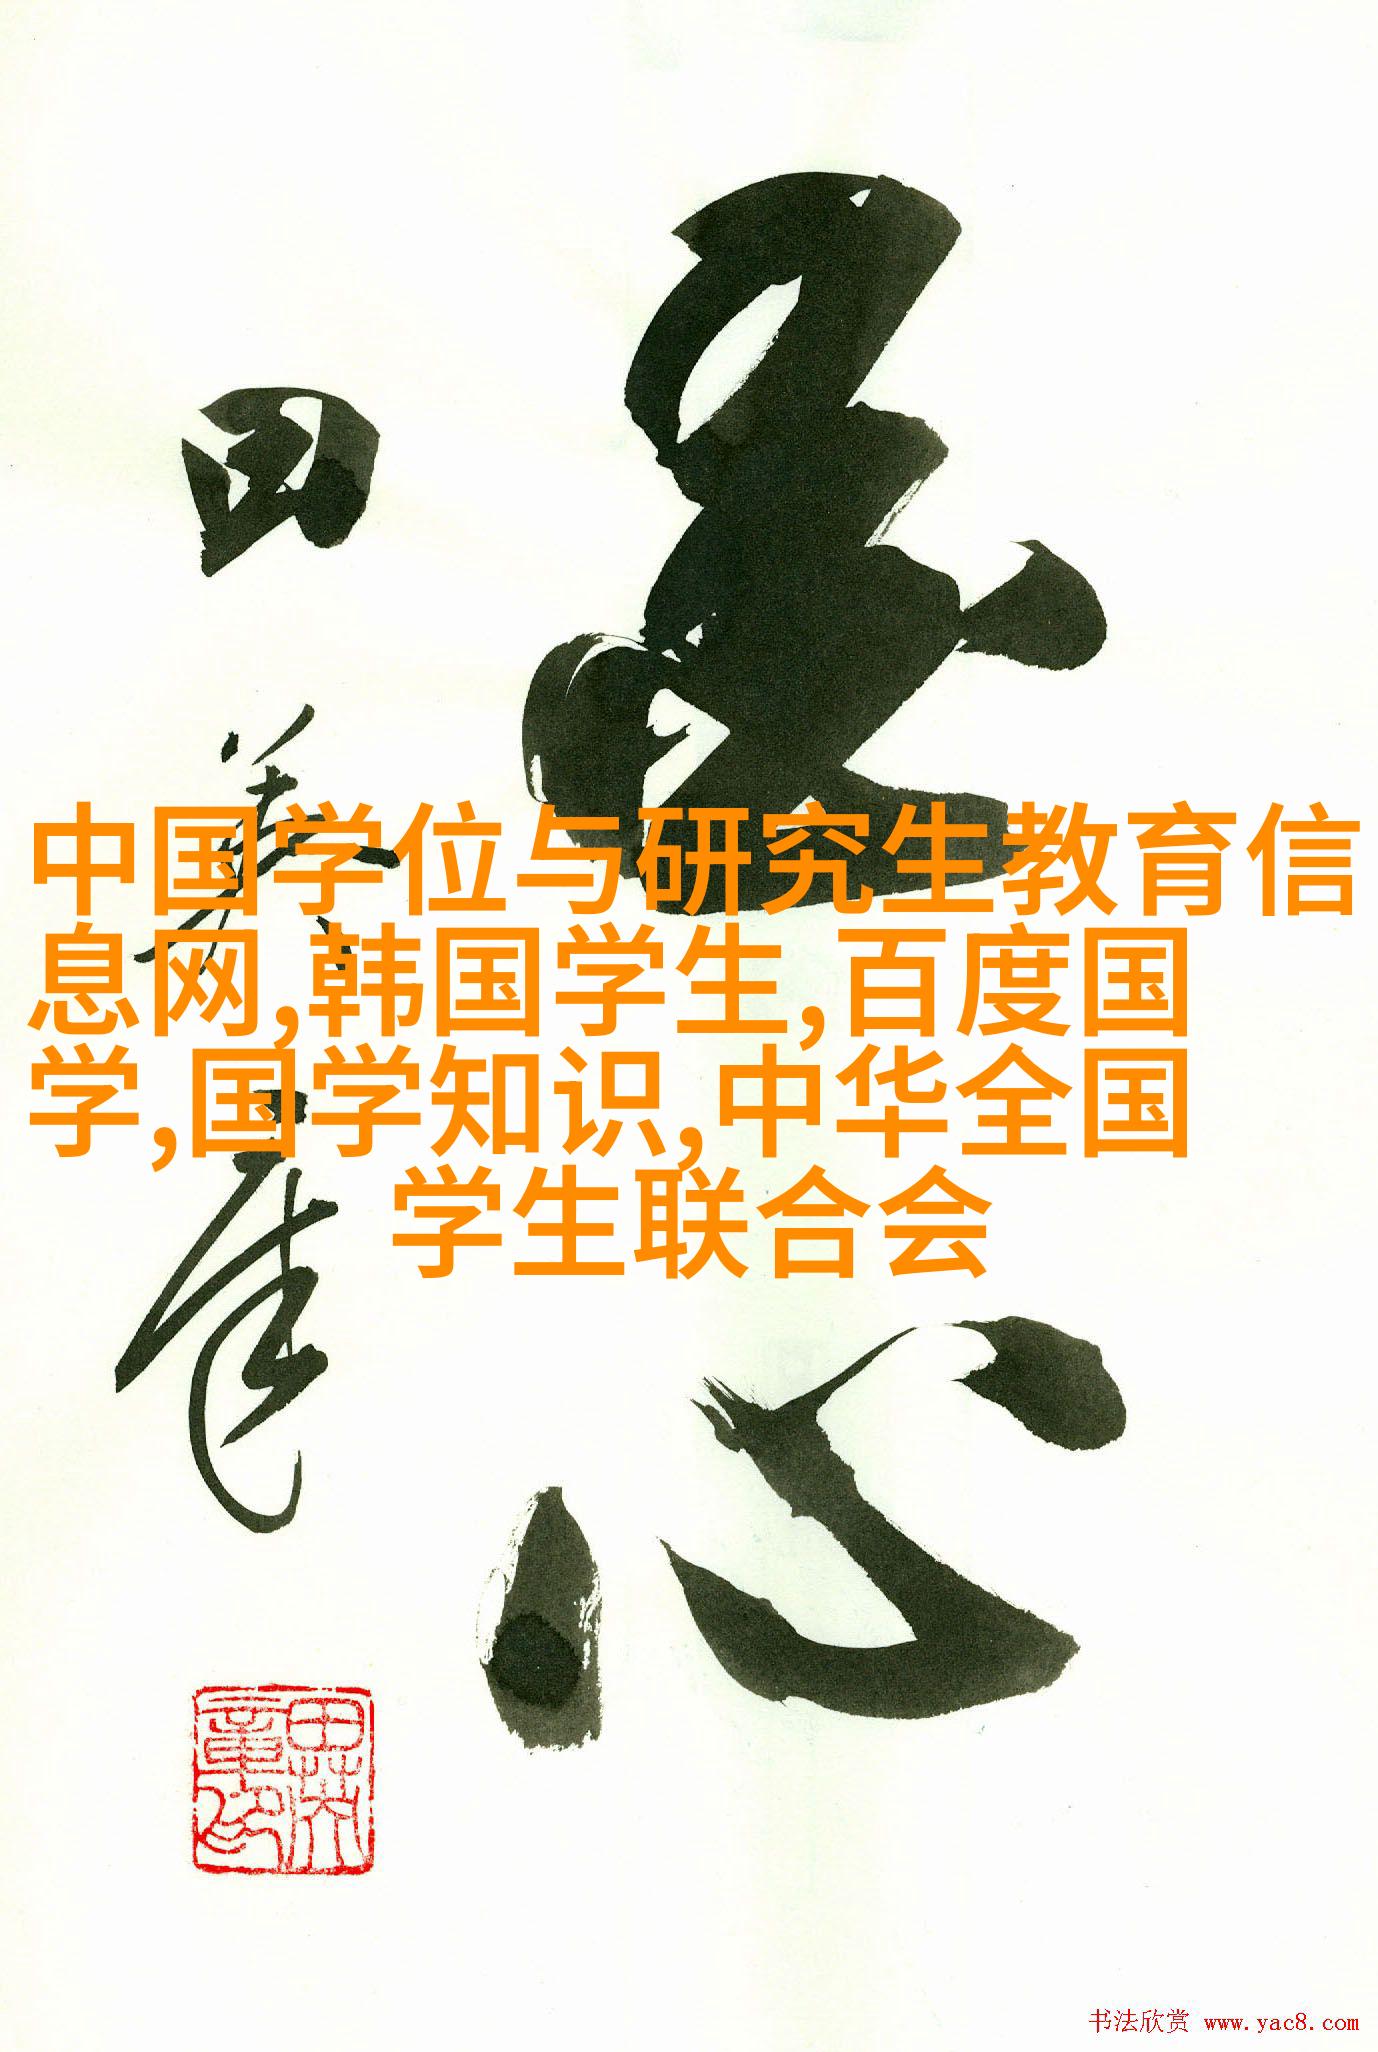 中国学位与研究生教育信
息网,韩国学生,百度国
学,国学知识,中华全国
学生联合会
心
田英章
书法欣赏 www.yac8.com